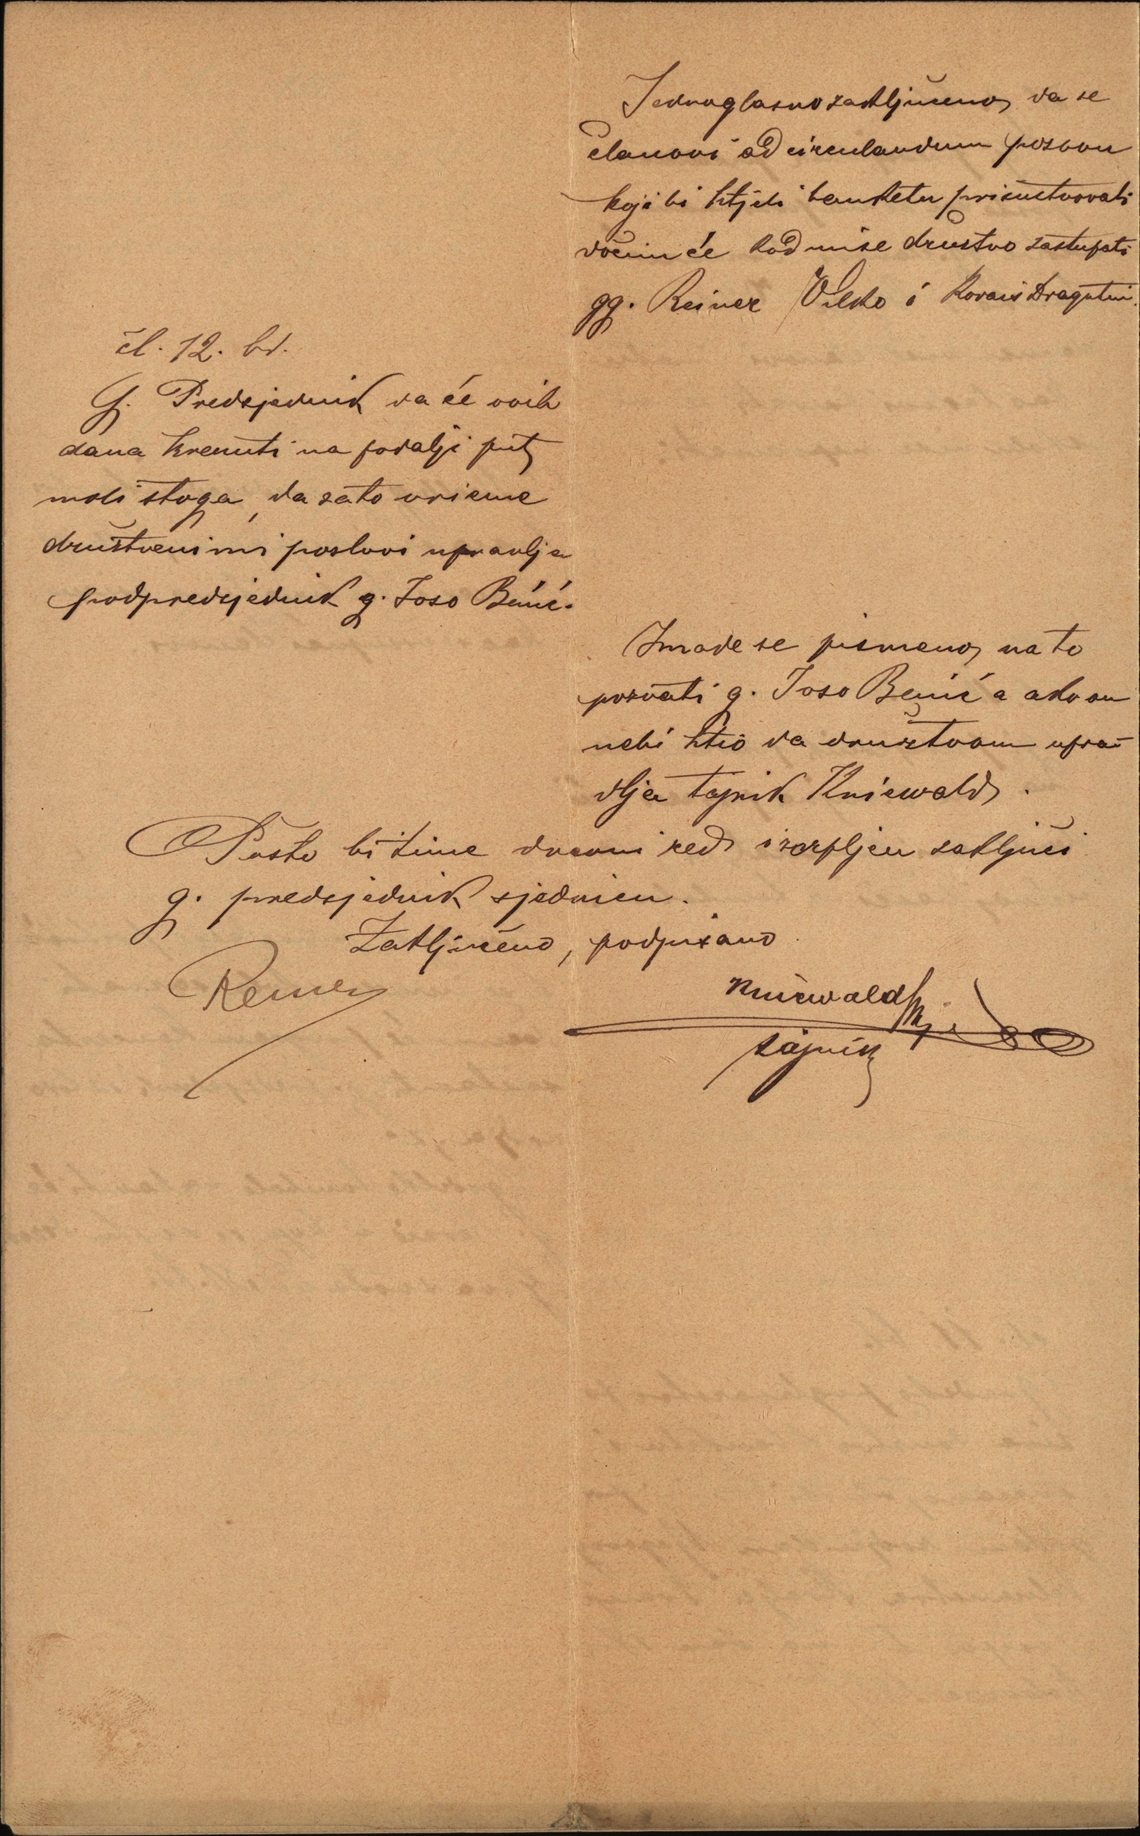 Jednoglasno zaključeno, da se
članovi ad circulandum pozovu
koji bi htjeli banketu prisustvovati
dočim će kod mise družtvo zastupati
gg. Reiner Vilko i Kovačić Dragutin.
čl. 12. bd.
G. Predsjednik da će ovih
dana krenuti na podalji put,
moli stoga, da zato vrieme
družtvenimi poslovi upravlja
podpredsjednik g. Joso Benić.
Imade se pismeno na to
pozvati g. Joso Benić a ako on
nebi htio da družtvom upra-
vlja tajnik Kniewald.
Pošto bi time dnevni red izcrpljen zaključi
g. predsjednik sjednicu.
Zaključeno, podpisano.
Reiner
Kniewald
tajnik